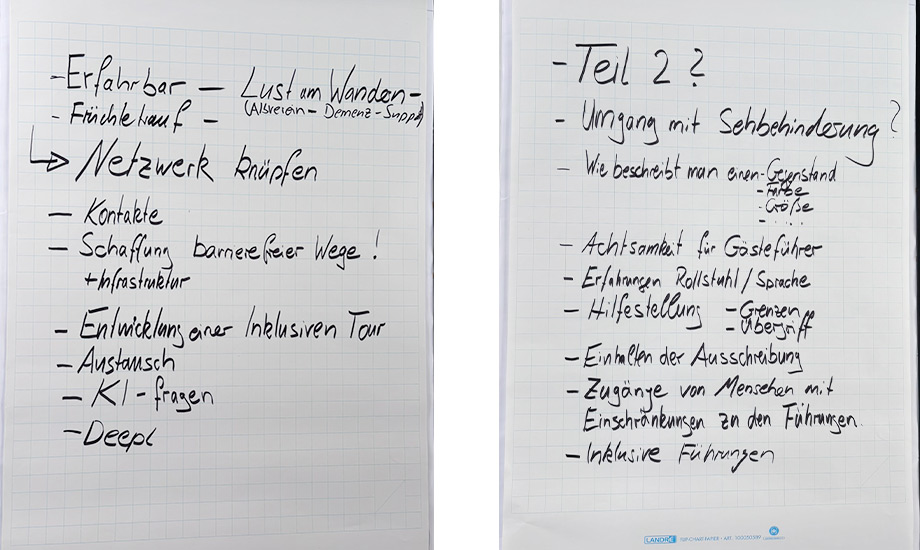 - Erfahrbar - Lust am Wandern -
(Alsverein - Demenz - Suppo
- Früchtetrauf -
→ Netzwerk knüpfen
- Kontakte
- Schaffung barrierefreier Wege!
+ Infrastruktur
- Entwicklung einer Inklusiven Tour
- Austausch
- KI - fragen
- DeepL
- Teil 2 ?
- Umgang mit Sehbehinderung?
- Wie beschreibt man einen - Gegenstand
- Farbe
- Größe
- .....
- Achtsamkeit für Gästeführer
- Erfahrungen Rollstuhl / Sprache
- Hilfestellung - Grenzen
- Übergriff
- Einhalten der Ausschreibung
- Zugänge von Menschen mit
Einschränkungen zu den Führungen.
- Inklusive Führungen
LANDRÉ FLIP-CHART-PAPIER • ART.